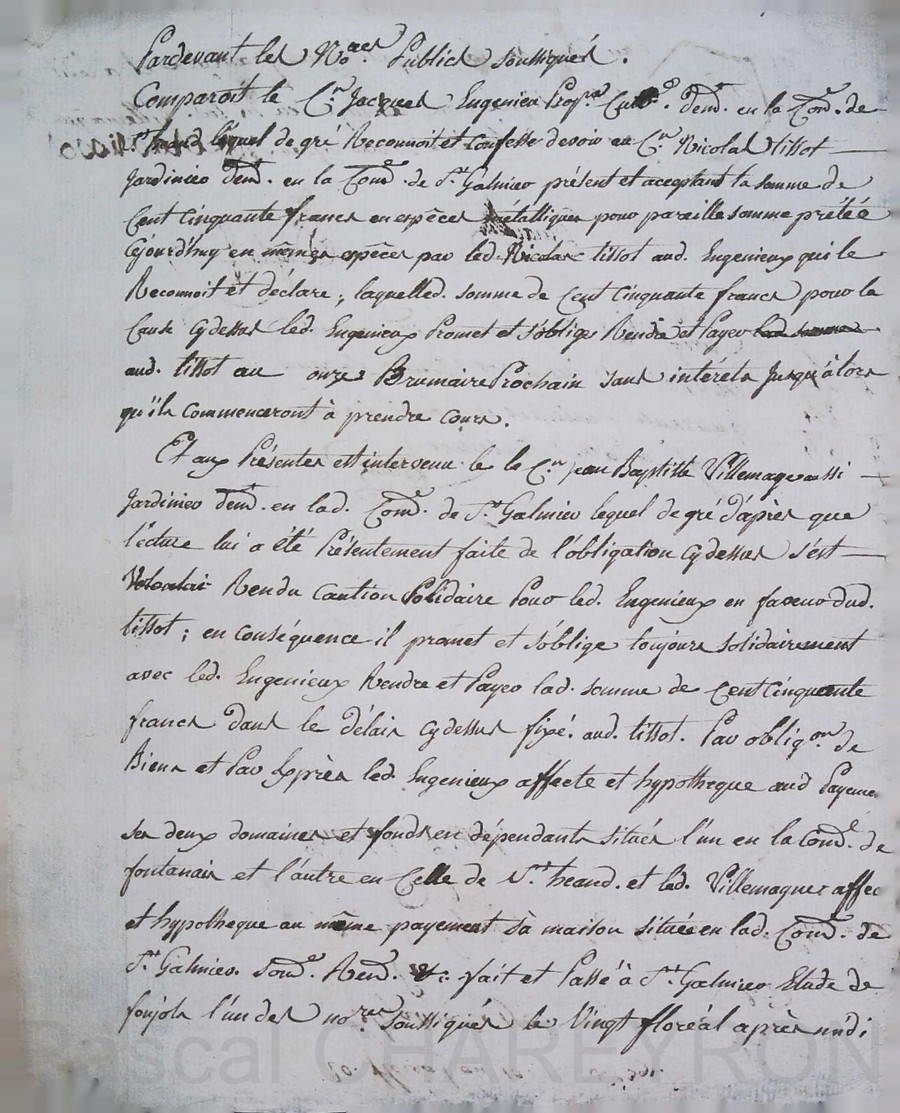 Pardevant les No.res Publics soussignés.
Comparoit le C.n Jacques Engenieu Prop.re Cult.r Dem.t en la Com.e de
St. heand lequel de gré Reconnoit et Confesse devoir au C.n Nicolas tissot
Jardinier Dem.t en la Com.e de St. Galmier présent et aceptant la somme de
Cent Cinquante francs en espèces métalliques pour pareille somme prétée
Cejourd'huy en mêmes espèces par led. Nicolas tissot aud. Engenieux qui le
Reconnoit et déclare ; laquelled. somme de Cent Cinquante francs pour la
Cause Cydessus led. Engenieux Promet et s'oblige Rendre et Payer lad. somme
aud. tissot au onze Brumaire Prochain sans intérets jusqu'à lors
qu'ils Commenceront à prendre Cours.
Et aux Présentes est intervenu le le C.n jean Baptiste Villemagne aussi
Jardinier Dem.t en lad. Com.e de St. Galmier lequel de gré d'après que
lecture lui a été Présentement faite de l'obligation Cydessus s'est
Volontai Rendu Caution Solidaire Pour led. Engenieux en faveur dud.
tissot ; en conséquence il promet et s'oblige toujours solidairement
avec led. Engenieux Rendre et Payer lad. somme de Cent Cinquante
francs dans le délais Cydessus fixé. aud. tissot. Par oblig.on de
Biens et Par Exprès led. Engenieux affecte et hypotheque aud Payeme
ses deux domaines et fonds en dépendants situés l'un en la Com.e de
fontanais et l'autre en Celle de St. heand. et led. Villemagne affec
et hypotheque au même payement sa maison située en lad. Com.e de
St. Galmier. Soum. Ren. &c: fait et Passé à St. Galmier Etude de
foujols l'un des no.res Soussignés le Vingt floréal après midi
Pascal CHAREYRON